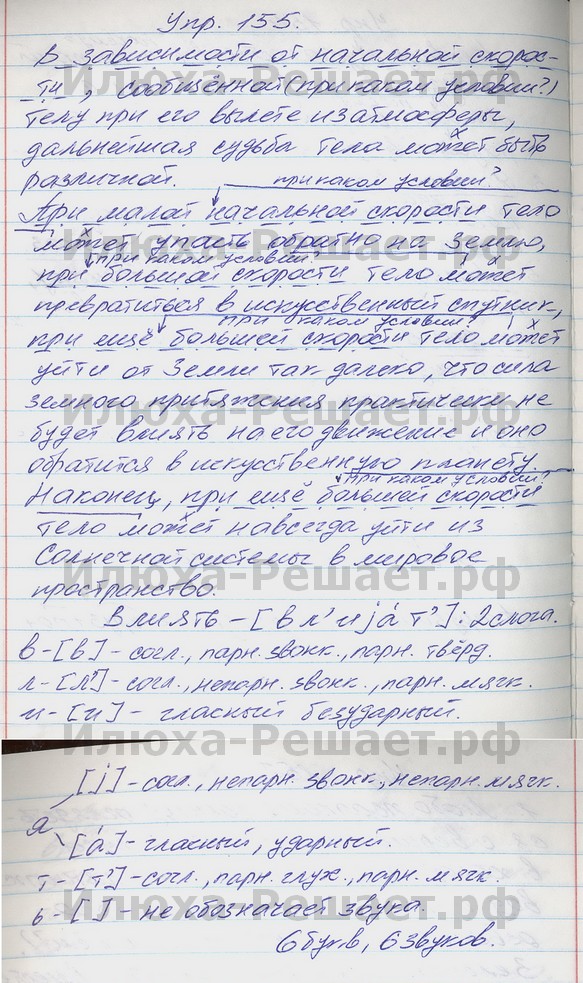 Упр. 155.
В зависимости от начальной скорос-
ти, сообщённой (при каком условии?)
телу при его вылете из атмосферы,
дальнейшая судьба тела может быть
различной.
при каком условии?
При малой начальной скорости тело
может упасть обратно на Землю,
при каком условии?
при большой скорости тело может
превратиться в искусственный спутник,
при каком условии?
при ещё большей скорости тело может
уйти от Земли так далеко, что сила
земного притяжения практически не
будет влиять на его движение и оно
обратится в искусственную планету.
при каком условии?
Наконец, при ещё большей скорости
тело может навсегда уйти из
Солнечной системы в мировое
пространство.
Влиять - [вл'иjáт']: 2 слога.
в - [в] - согл., парн. звонк., парн. твёрд.
л - [л'] - согл., непарн. звонк., парн. мягк.
и - [и] - гласный безударный.
Илюха-Решает.рф
[j] - согл., непарн. звонк., непарн. мягк.
я
[á] - гласный, ударный.
т - [т'] - согл., парн. глух., парн. мягк.
ь - [ ] - не обозначает звука.
6 букв, 6 звуков.